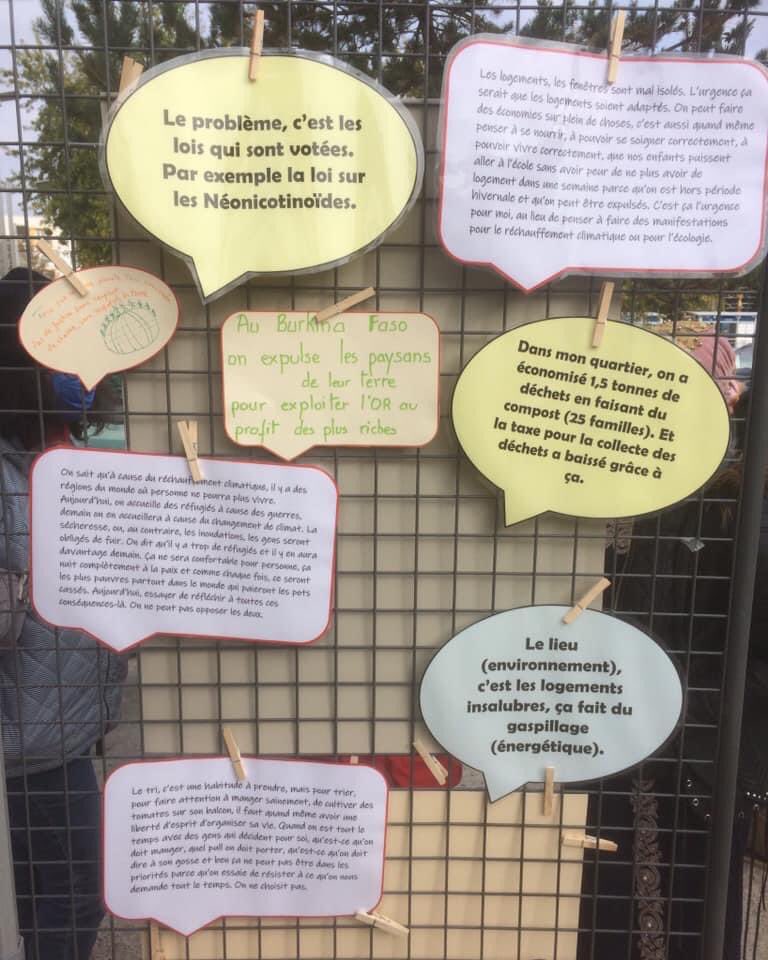 Le problème, c'est les
lois qui sont votées.
Par exemple la loi sur
les Néonicotinoïdes.
Les logements, les fenêtres sont mal isolés. L'urgence ça
serait que les logements soient adaptés. On peut faire
des économies sur plein de choses, c'est aussi quand même
penser à se nourrir, à pouvoir se soigner correctement, à
pouvoir vivre correctement, que nos enfants puissent
aller à l'école sans avoir peur de ne plus avoir de
logement dans une semaine parce qu'on est hors période
hivernale et qu'on peut être expulsés. C'est ça l'urgence
pour moi, au lieu de penser à faire des manifestations
pour le réchauffement climatique ou pour l'écologie.
Au Burkina Faso
on expulse les paysans
de leur terre
pour exploiter l'OR au
profit des plus riches
Dans mon quartier, on a
économisé 1,5 tonnes de
déchets en faisant du
compost (25 familles). Et
la taxe pour la collecte des
déchets a baissé grâce à
ça.
On sait qu'à cause du réchauffement climatique, il y a des
régions du monde où personne ne pourra plus vivre.
Aujourd'hui, on accueille des réfugiés à cause des guerres,
demain on en accueillera à cause du changement de climat. La
sécheresse, ou, au contraire, les inondations, les gens seront
obligés de fuir. On dit qu'il y a trop de réfugiés et il y en aura
davantage demain. Ça ne sera confortable pour personne, ça
nuit complètement à la paix et comme chaque fois, ce seront
les plus pauvres partout dans le monde qui paieront les pots
cassés. Aujourd'hui, essayer de réfléchir à toutes ces
conséquences-là. On ne peut pas opposer les deux.
Le lieu
(environnement),
c'est les logements
insalubres, ça fait du
gaspillage
(énergétique).
Le tri, c'est une habitude à prendre, mais pour trier,
pour faire attention à manger sainement, de cultiver des
tomates sur son balcon, il faut quand même avoir une
liberté d'esprit d'organiser sa vie. Quand on est tout le
temps avec des gens qui décident pour soi, qu'est-ce qu'on
doit manger, quel pull on doit porter, qu'est-ce qu'on doit
dire à son gosse et ben ça ne peut pas être dans les
priorités parce qu'on essaie de résister à ce qu'on nous
demande tout le temps. On ne choisit pas.